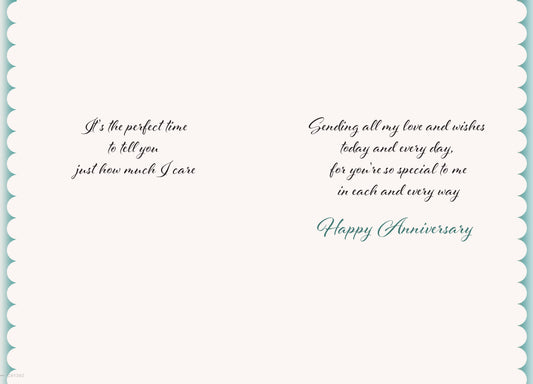 It's the perfect time
to tell you
just how much I care
Sending all my love and wishes
today and every day,
for you're so special to me
in each and every way
Happy Anniversary